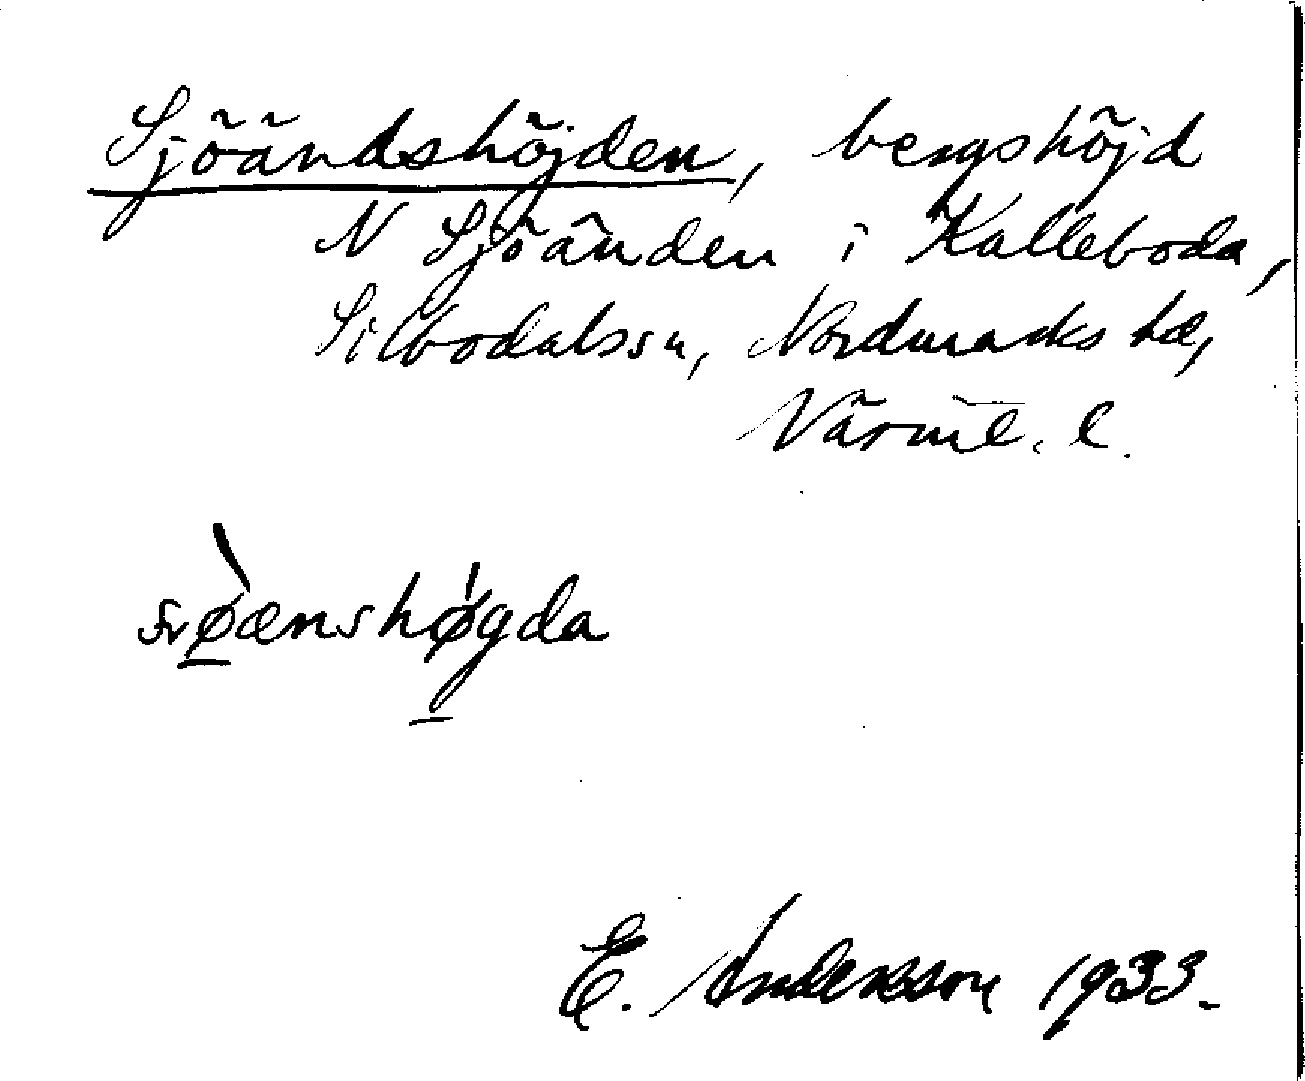 Sjöändshöjden, bergshöjd
N Sjöänden i Kalleboda,
Silbodalssn, Nordmarks hd,
Värml. l.
høgda
E. Andersson 1933.